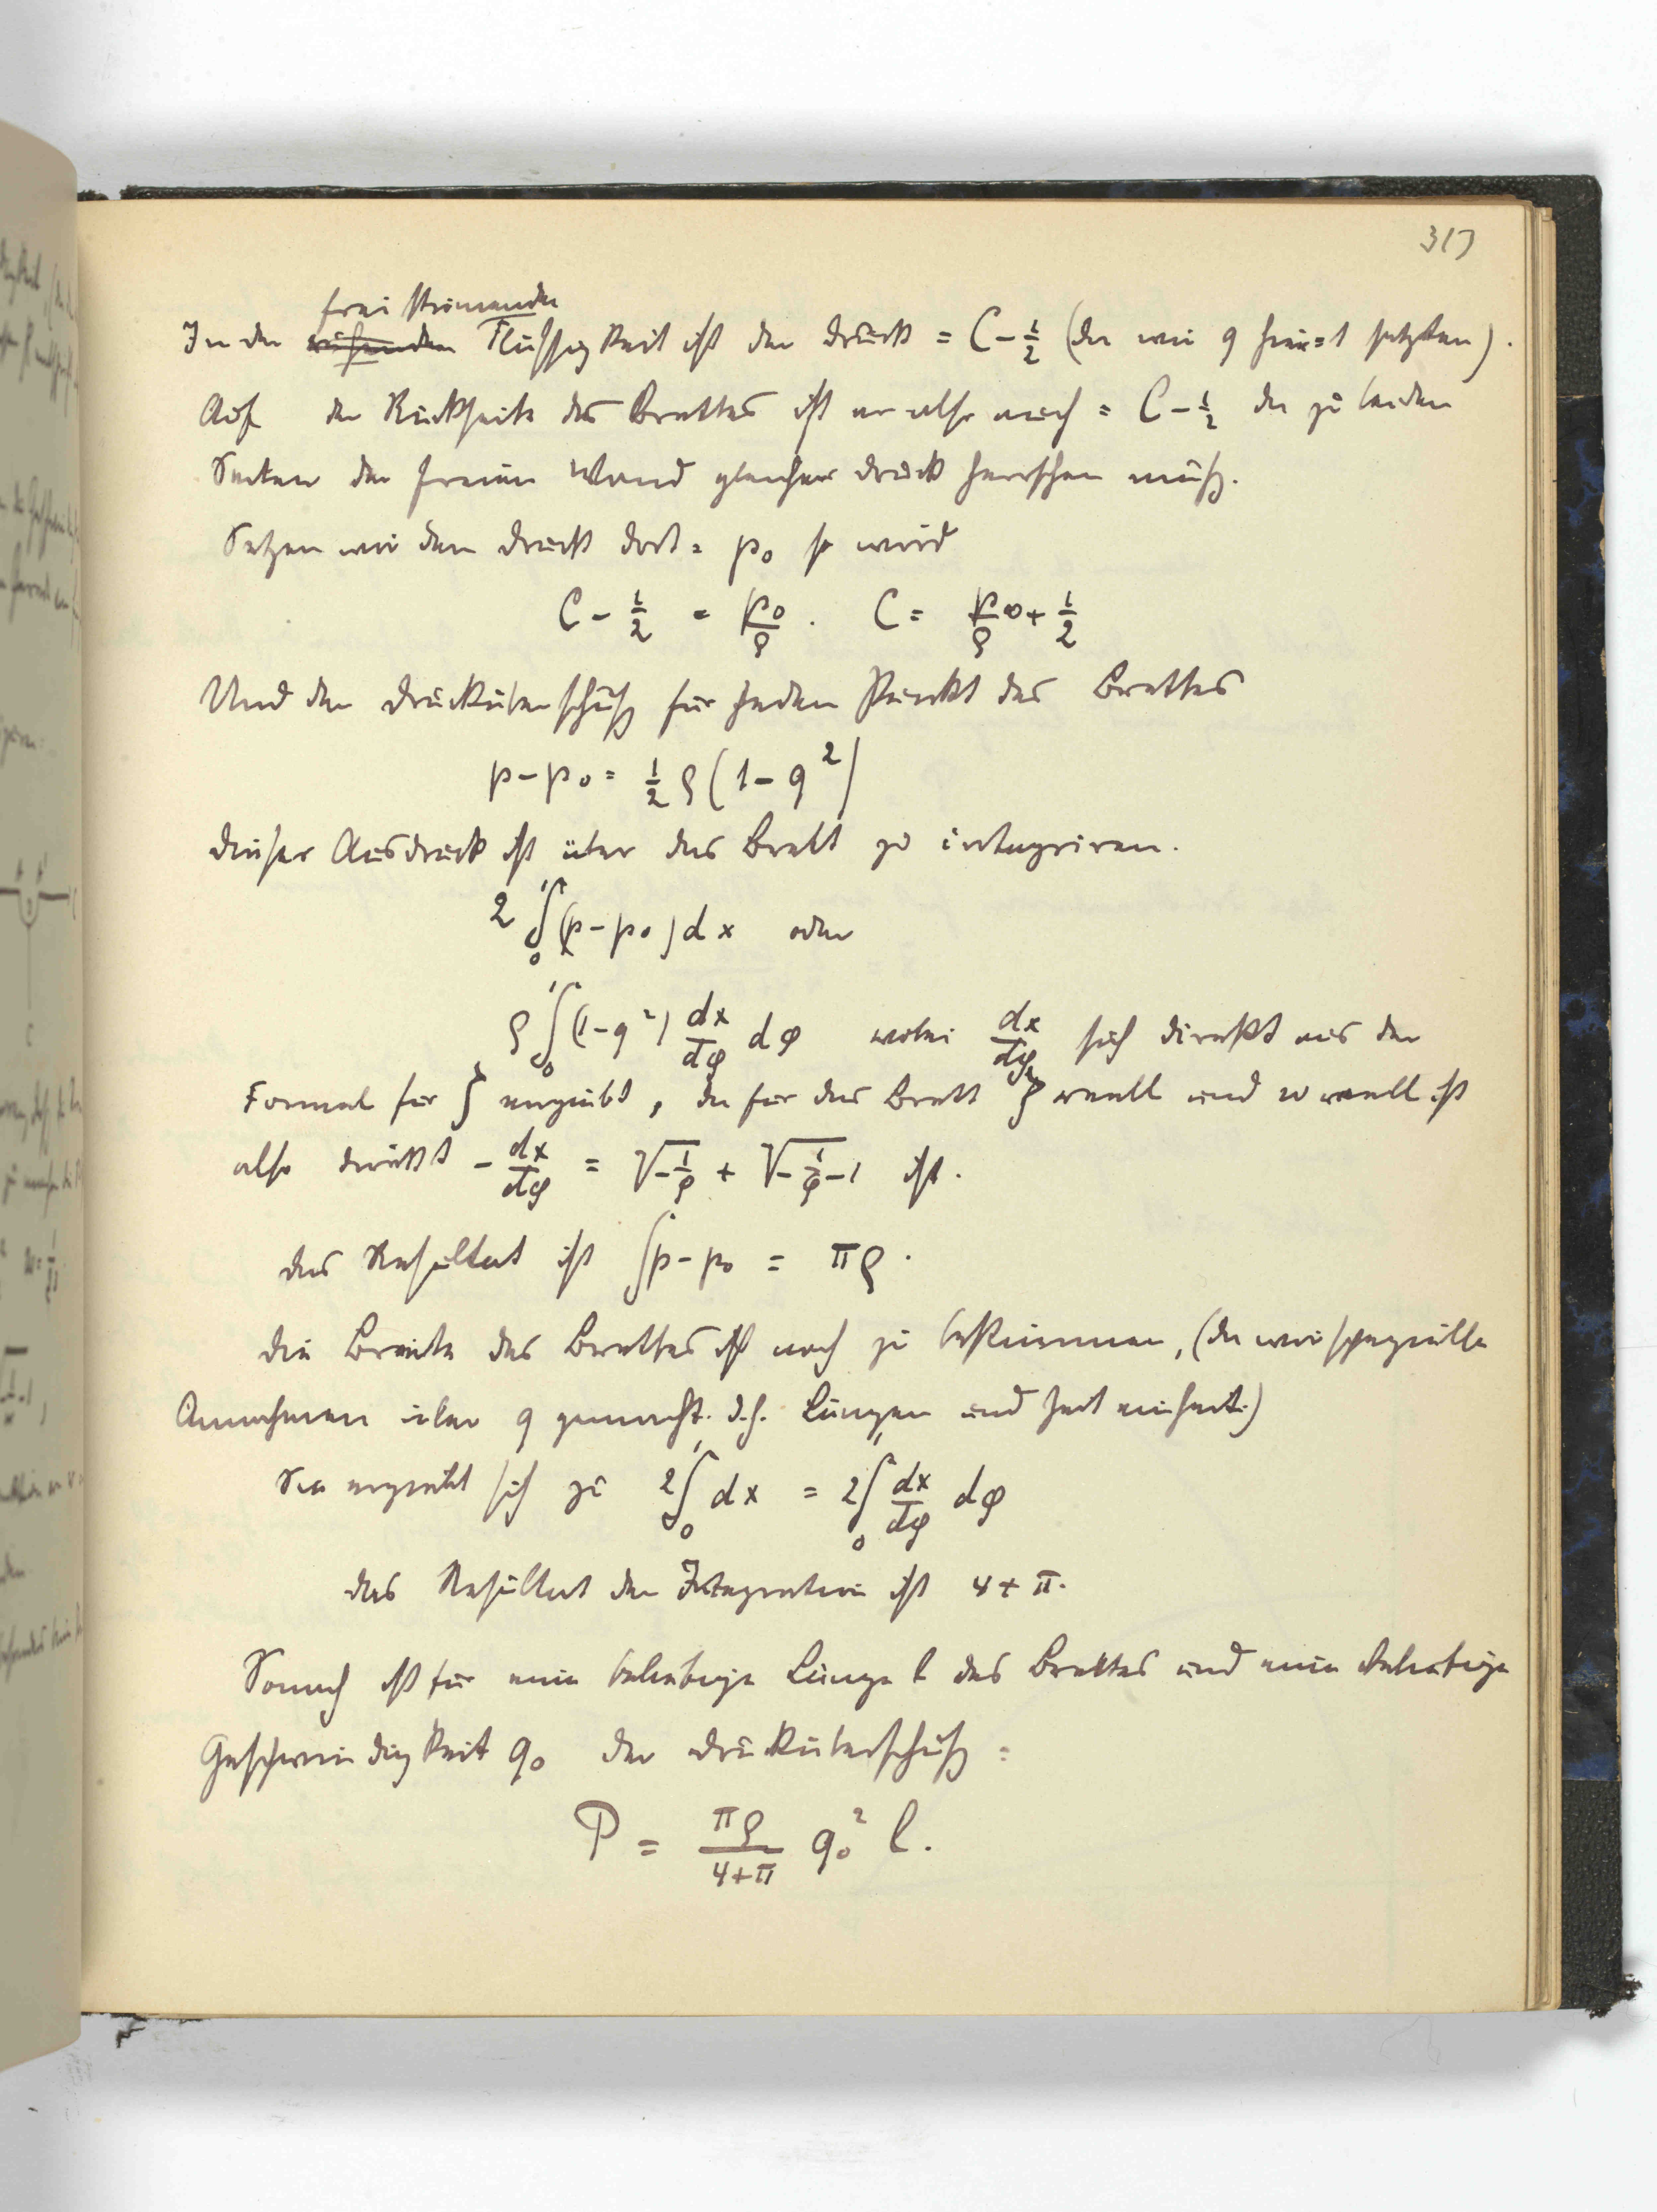 317
frei strömenden
In der ruhenden Flüssigkeit ist der Druck = C - 1/2 (da wir q hier = 1 setzten).
Auf der Rückseite des Brettes ist er also auch = C - 1/2 da zu beiden
Seiten der freien Wand gleicher Druck herrschen muß.
Setzen wir den Druck dort = p₀ so wird
C - 1/2 = p₀/ρ . C = p₀/ρ + 1/2
Und der Drucküberschuß für jeden Punkt des Brettes
p - p₀ = 1/2 ρ (1 - q²)
Dieser Ausdruck ist über das Brett zu integriren.
2 ∫₀¹ (p - p₀) dx oder
ρ ∫₀¹ (1 - q²) dx/dφ dφ wobei dx/dφ sich direkt aus der
Formel für ζ ergiebt, da für das Brett ζ reell und w reell ist
also direkt - dx/dφ = √(-1/φ) + √(-1/φ - 1) ist.
Das Resultat ist ∫ p - p₀ = πρ.
Die Breite des Brettes ist noch zu bestimmen, (da wir spezielle
Annahmen über q gemacht. d.h. Längen und Zeiteinheit.)
Sie ergiebt sich zu 2 ∫₀¹ dx = 2 ∫₀¹ dx/dφ dφ
Das Resultat der Integration ist 4 + π.
Somit ist für eine beliebige Länge l des Brettes und eine beliebige
Geschwindigkeit q₀ der Drucküberschuß =
P = πρ/(4+π) q₀² l.